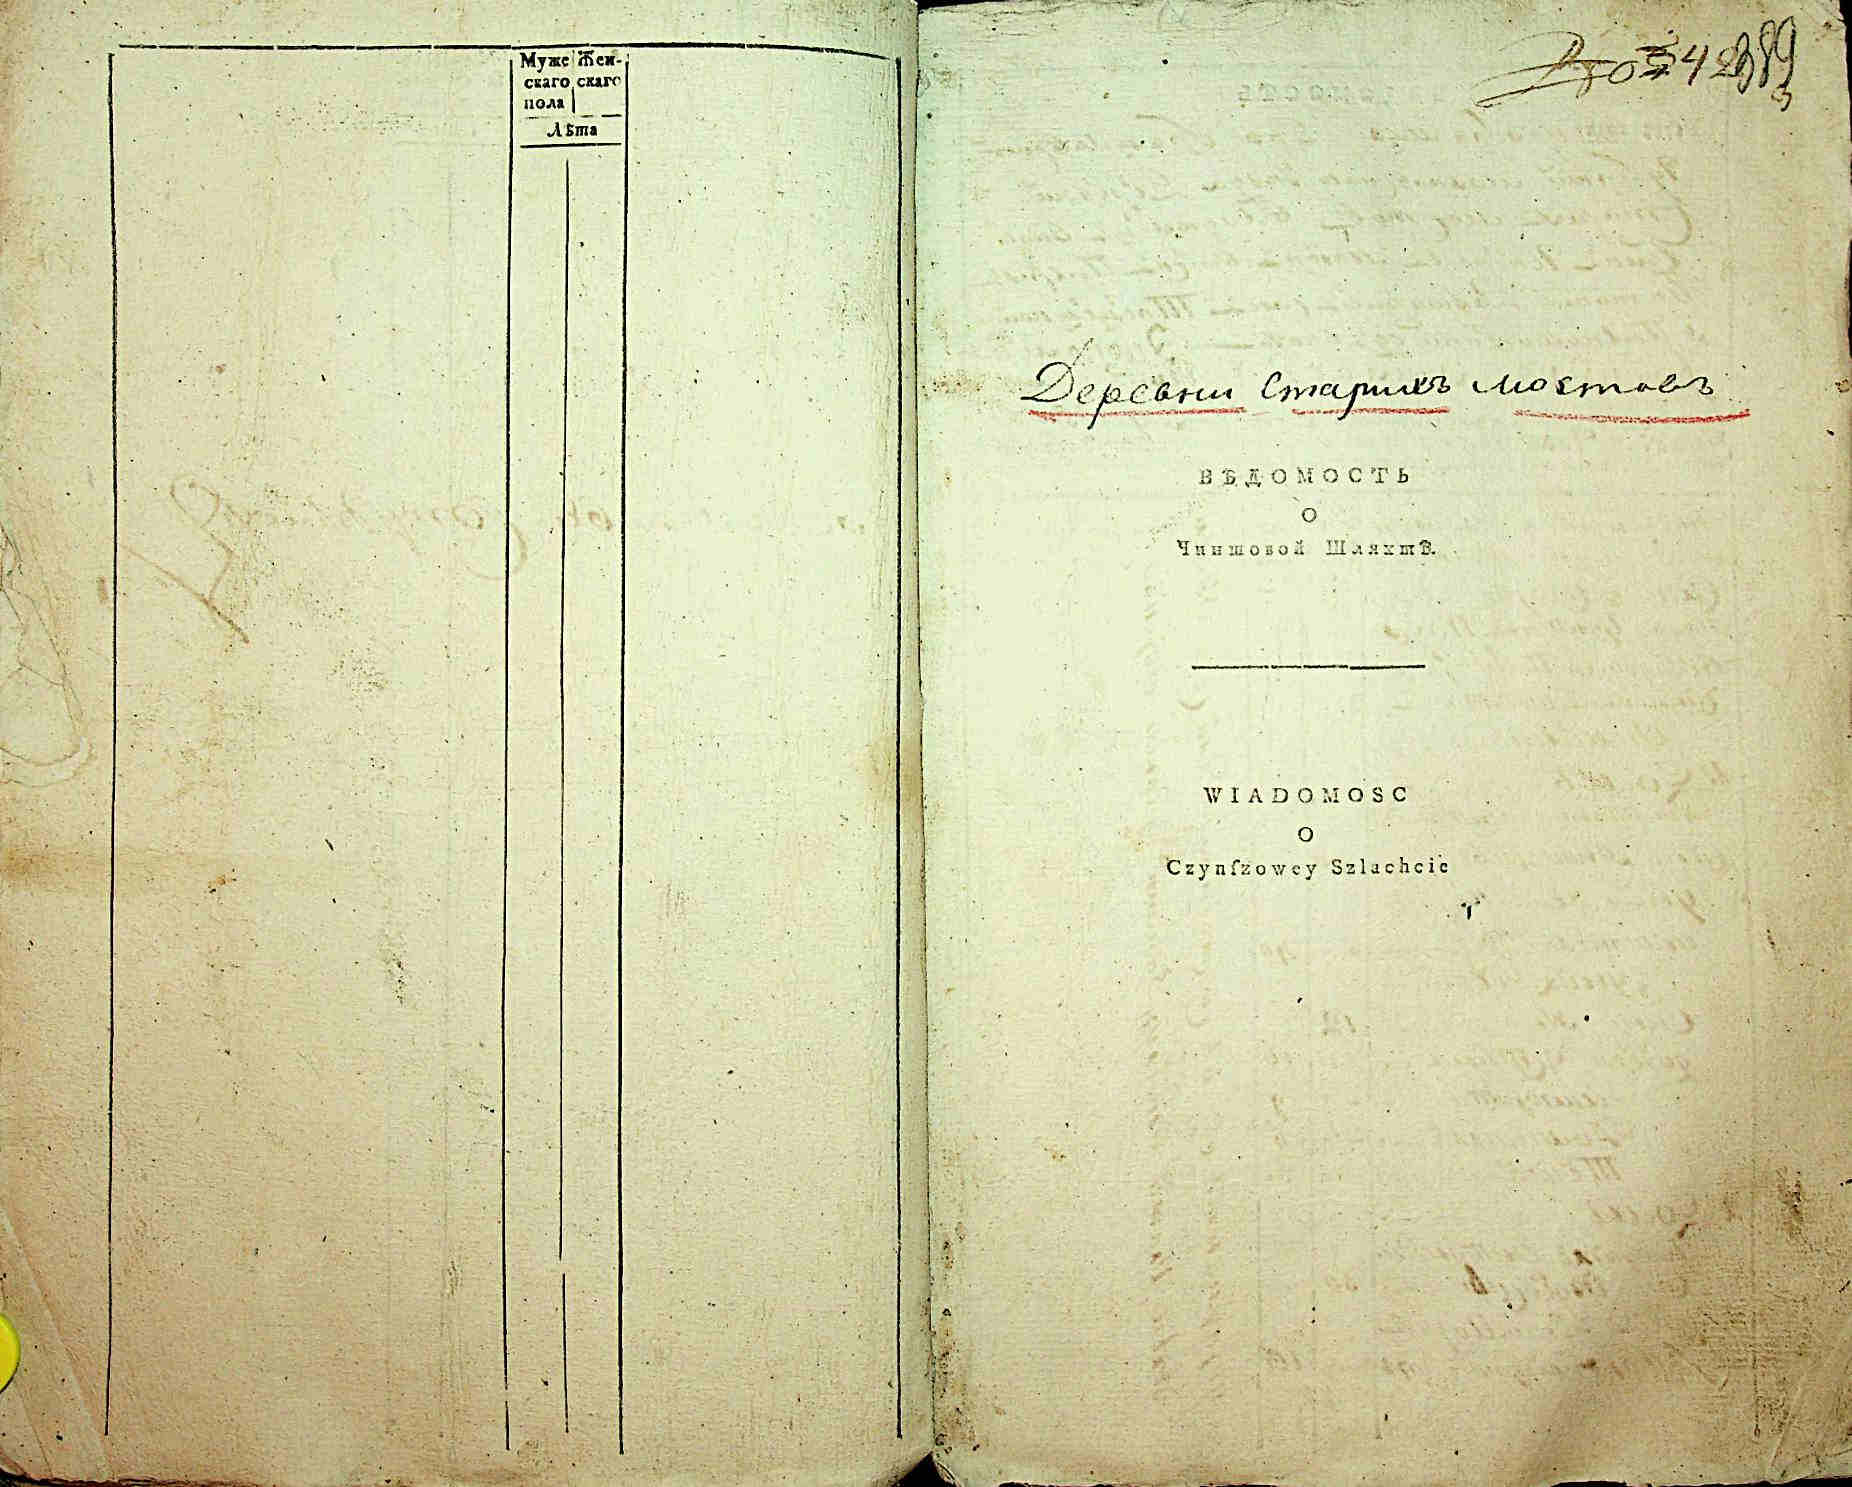 Муже Жен-
скаго скаго
пола
Лѣта
Деревни Старихъ мостовъ
ВѢДОМОСТЬ
О
Чиншовой Шляхтѣ.
WIADOMOSC
O
Czynſzowey Szlachcie